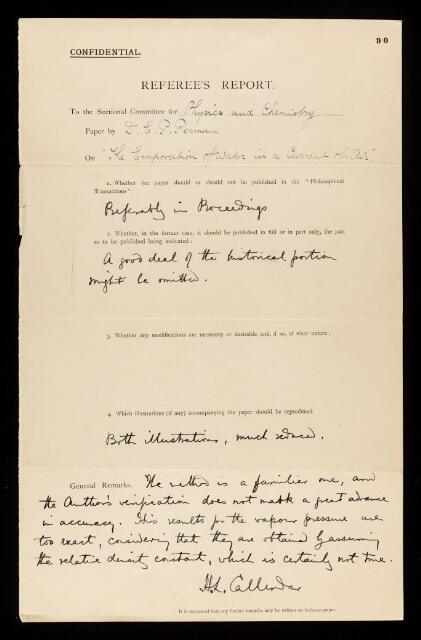 90
CONFIDENTIAL.
REFEREE'S REPORT.
To the Sectional Committee for Physics and Chemistry
Paper by D. E. P. Perman
On "The Evaporation of Water in a Current of Air"
1. Whether the paper should or should not be published in the "Philosophical
Transactions":
Preferably in Proceedings
2. Whether, in the former case, it should be published in full or in part only, the part
so to be published being indicated:
A good deal of the historical portion
might be omitted.
3. Whether any modifications are necessary or desirable, and, if so, of what nature:
4. Which illustrations (if any) accompanying the paper should be reproduced
Both illustrations, much reduced.
General Remarks. The method is a familiar one, and
the Author's verification does not mark a great advance
in accuracy. His results for the vapour pressure are
too exact, considering that they are obtained by assuming
the relative density constant, which is certainly not true.
H.L. Callendar
It is requested that any further remarks may be written on foolscap paper.